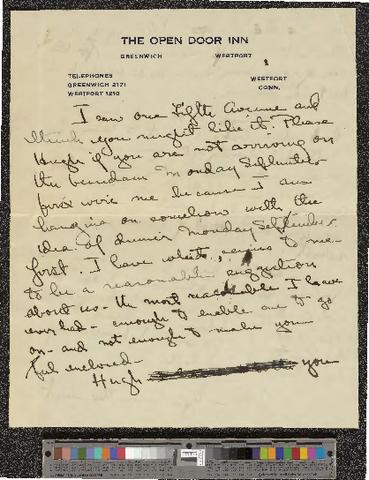 THE OPEN DOOR INN
GREENWICH WESTPORT
TELEPHONES
GREENWICH 2171
WESTPORT 1210
WESTPORT
CONN.
I saw one Fifth Avenue and
think you might like it. Please
Hugh if you are not arriving on
the Monday September
first wire me because I am
hanging on somehow with the
idea of dinner Monday September
first. I have what seems to me
to be a reasonable suggestion
about us - the most reasonable I have
ever had - enough to enable one to go
on - and not enough to make you
feel enclosed -
Hugh you